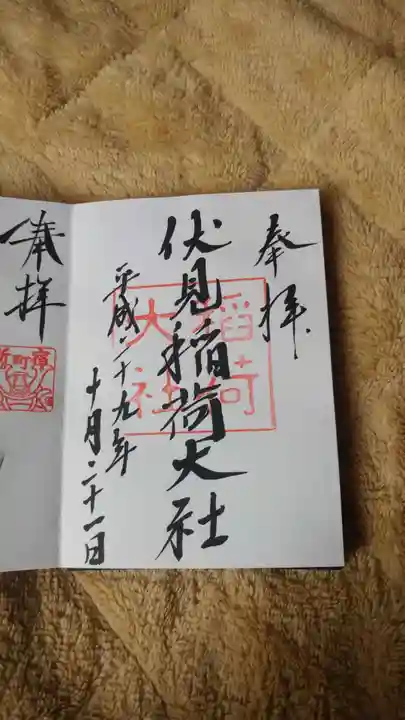 奉拝
伏見稲荷大社
稲荷
大社
平成二十九年
十月二十一日
奉拝